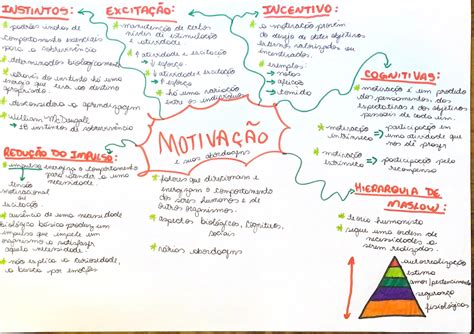 INSTINTOS:
padrão inato de
comportamentos essenciais
para a sobrevivência
determinados biologicamente
através do instinto há uma
energia que leva ao destino
apropriado
desconsidera a aprendizagem
William McDougall
→ 18 instintos de sobrevivência
EXCITAÇÃO:
manutenção de certos
níveis de estimulação
e atividade
↓ atividade e excitação
↑ esforço
↓ atividade e excitação
↓ esforço
há uma variação
entre os indivíduos
INCENTIVO:
a motivação provém
do desejo de obter objetivos
externos valorizados ou
incentivados.
exemplos:
→ notas
→ afetos
→ comida
COGNITIVAS:
motivação é um produto
dos pensamentos, das
expectativas e dos objetivos
pessoais de cada um.
motivação → participação em
intrínseca uma atividade que
nos dê prazer
motivação → participação pela
extrínseca recompensa
MOTIVAÇÃO
e suas abordagens
REDUÇÃO DO IMPULSO:
impulso energiza o comportamento
para atender a uma
necessidade.
tensão
motivacional
ou
excitação
ausência de uma necessidade
biológica básica produz um
impulso que impele um
organismo a satisfazer
aquela necessidade
não explica a curiosidade,
a busca por emoções
fatores que direcionam e
energizam o comportamento
dos seres humanos e de
outros organismos.
aspectos biológicos, cognitivos,
sociais
várias abordagens
HIERARQUIA DE
MASLOW:
teoria humanista
segue uma ordem de
necessidades a
serem realizadas.
autorrealização
estima
amor/pertencimento
segurança
fisiológicas